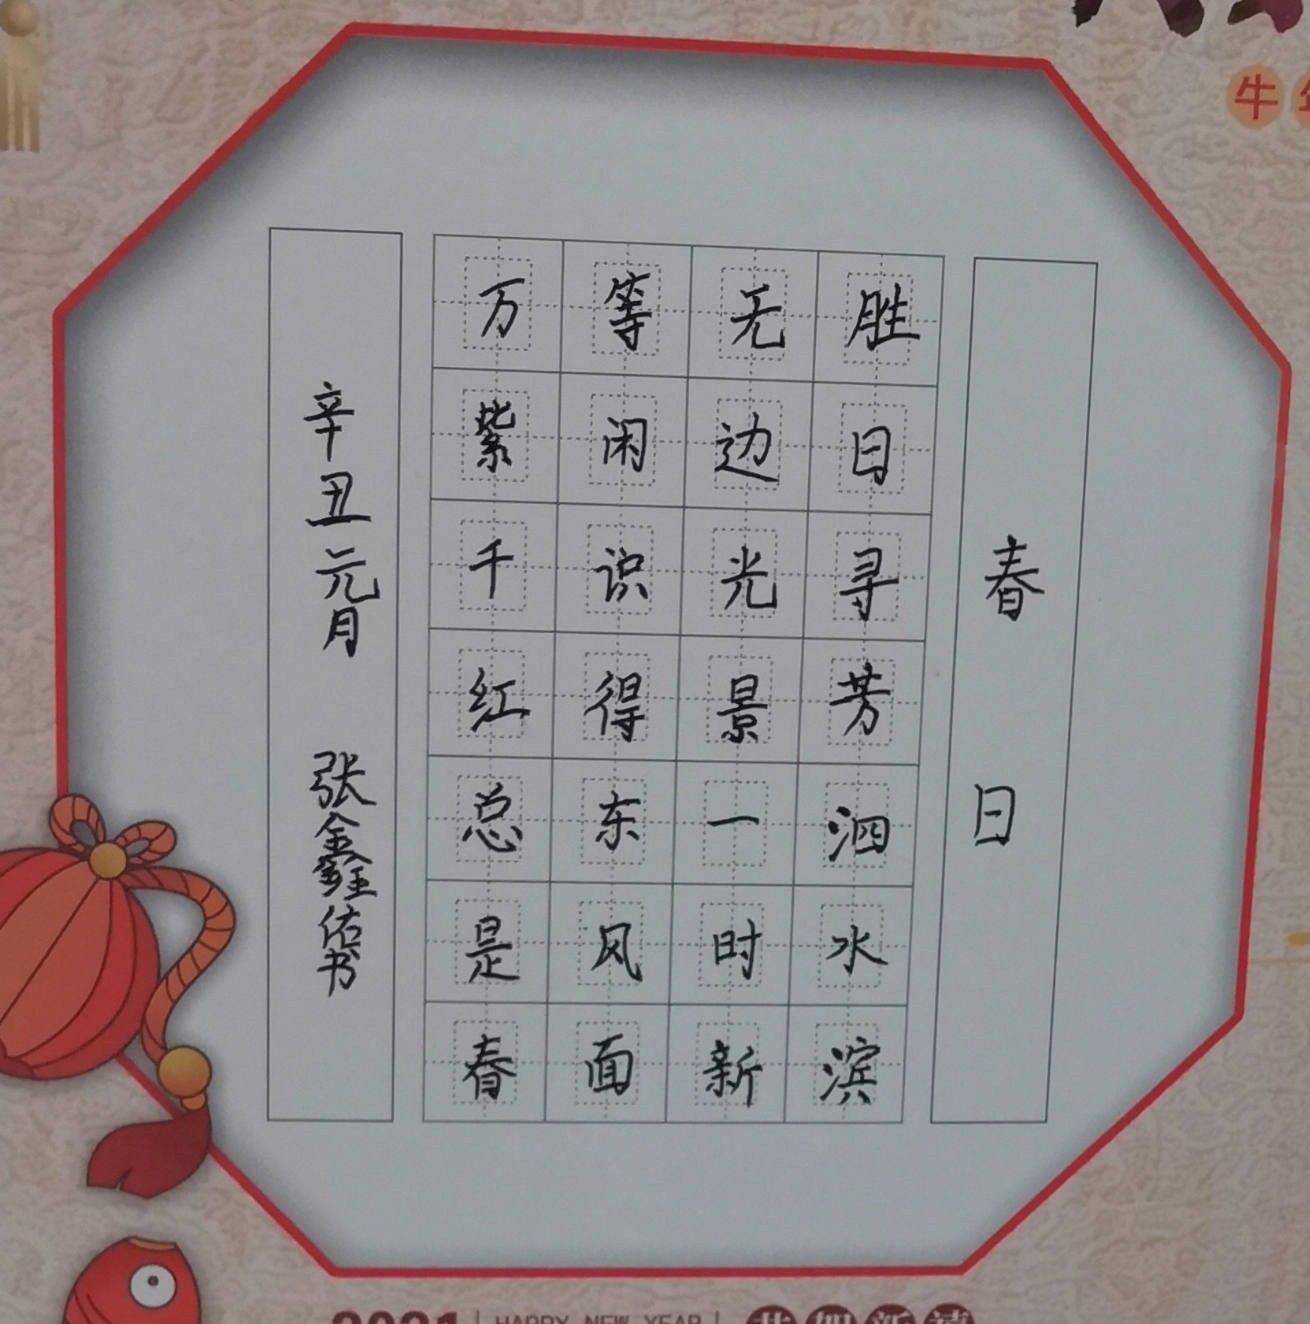 牛
春日
胜日寻芳泗水滨
无边光景一时新
等闲识得东风面
万紫千红总是春
辛丑元月 张鑫佑书
2021 HAPPY NEW YEAR 恭贺新禧